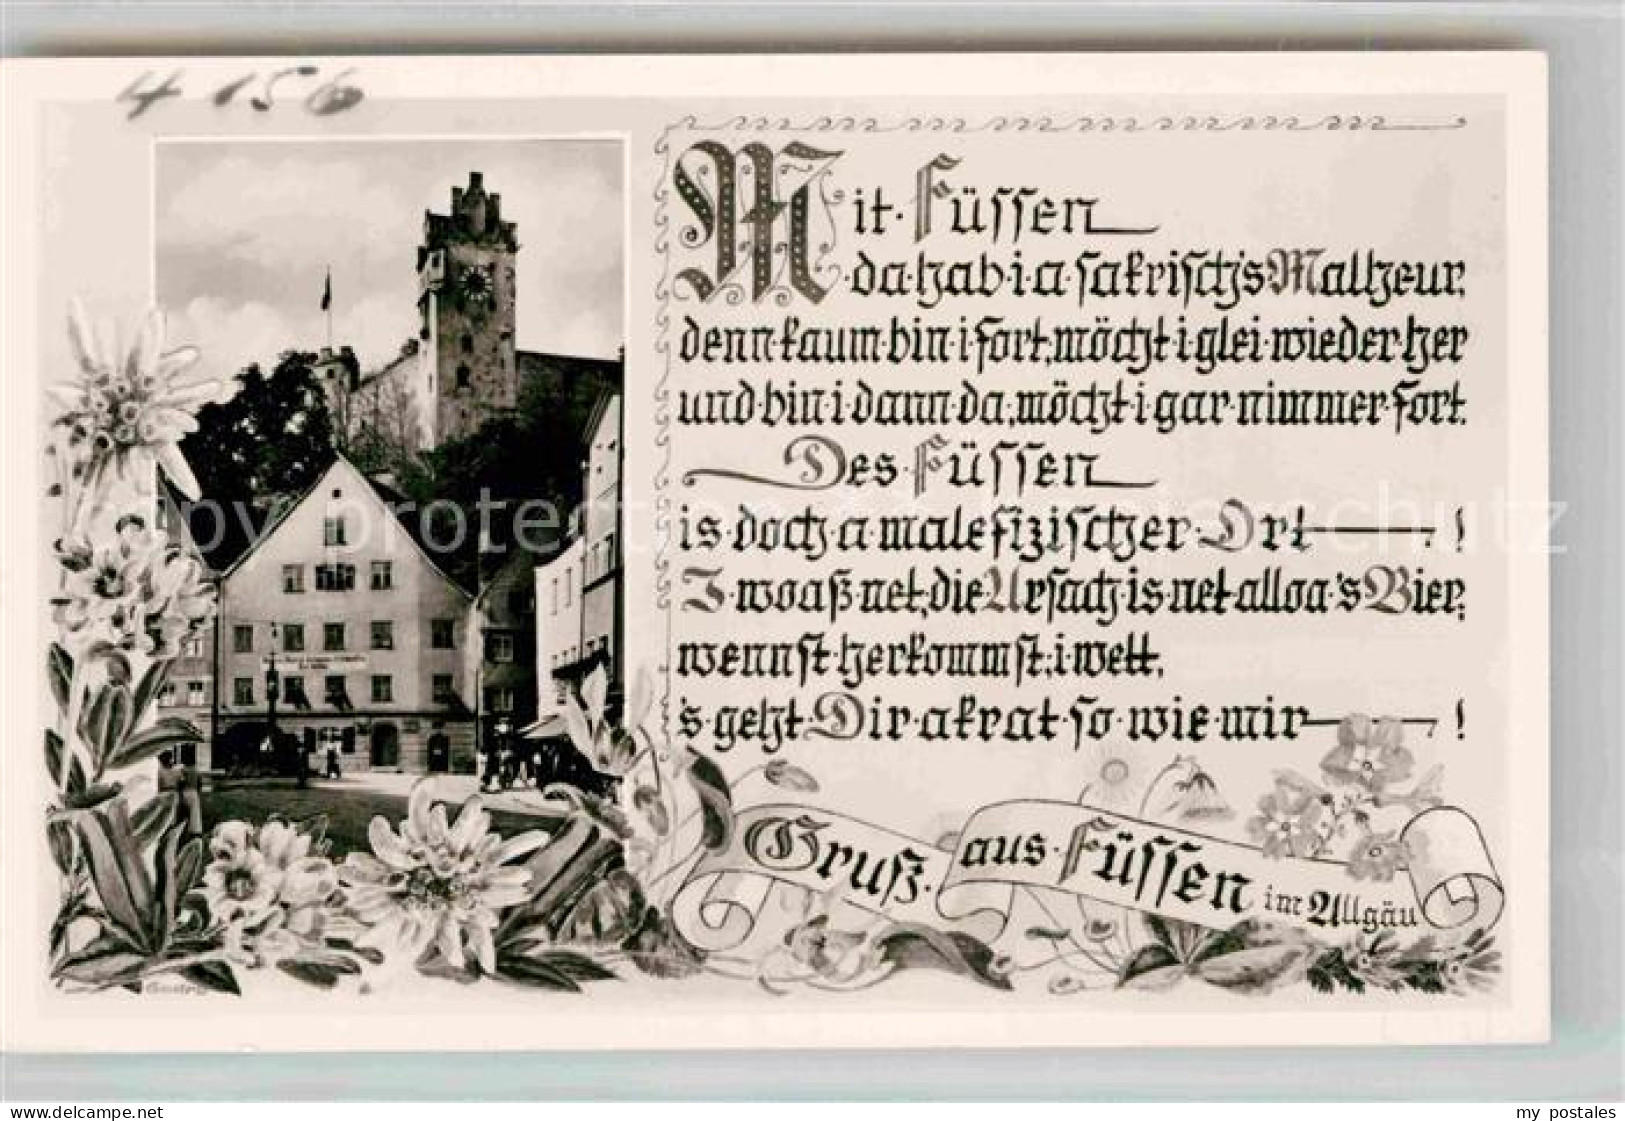 4 156
Mit Füssen
da hab i a sakrisch's Malheur,
denn kaum bin i fort, möcht i glei wieder her
und bin i dann da, möcht i gar nimmer fort.
Des Füssen
is doch a malefizischer Ort — !
I woaß net, die Ursach is net alloa 's Bier,
wennst herkommst, i wett,
's geht Dir akrat so wie mir — !
Gruß aus Füssen im Allgäu
www.delcampe.net
my_postales